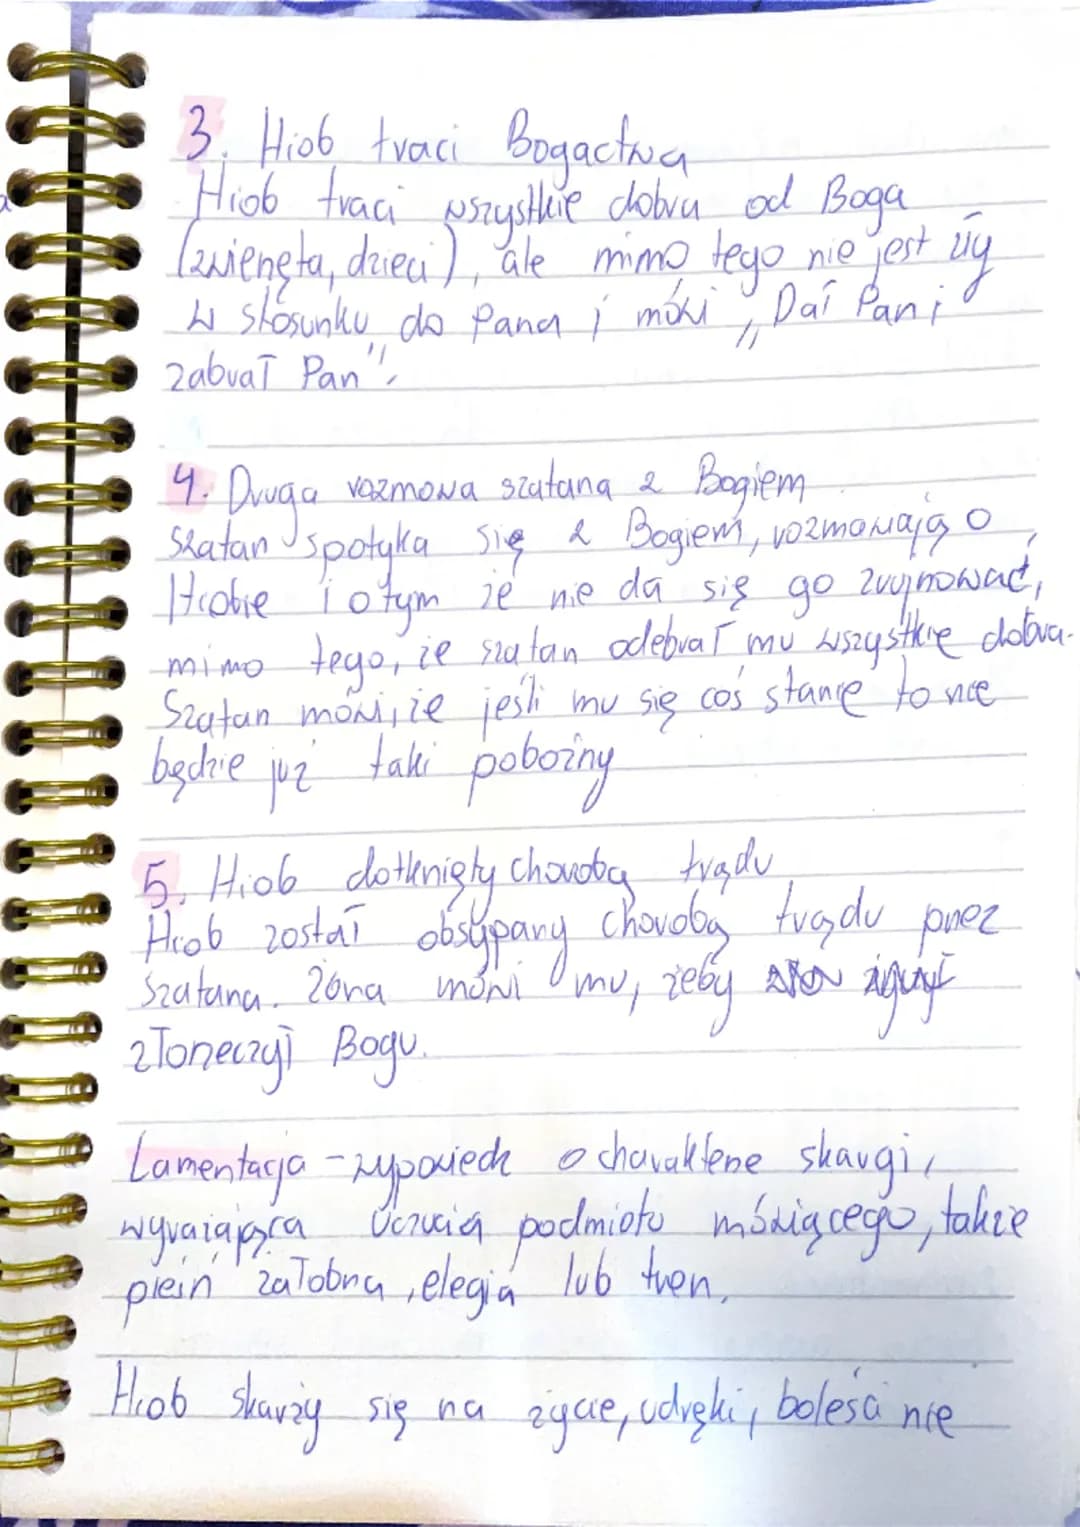 3. Hiob traci Bogactwa
Hiob traci wszystkie dobra od Boga
(zwierzęta, dzieci), ale mimo tego nie jest zły
w stosunku do Pana i mówi „Dał Pan i
zabrał Pan”.
4. Druga rozmowa szatana z Bogiem
Szatan spotyka się z Bogiem, rozmawiają o
Hiobie i o tym że nie da się go zrujnować,
mimo tego, że szatan odebrał mu wszystkie dobra.
Szatan mówi, że jeśli mu się coś stanie to nie
będzie już taki pobożny
5. Hiob dotknięty chorobą trądu
Hiob został obsypany chorobą trądu przez
szatana. Żona mówi mu, żeby
złożeczył Bogu.
Lamentacja - wypowiedź o charakterze skargi,
wyrażająca uczucia podmiotu mówiącego, także
pieśń żałobna, elegia lub tren.
Hiob skarży się na życie, udręki, boleści nie